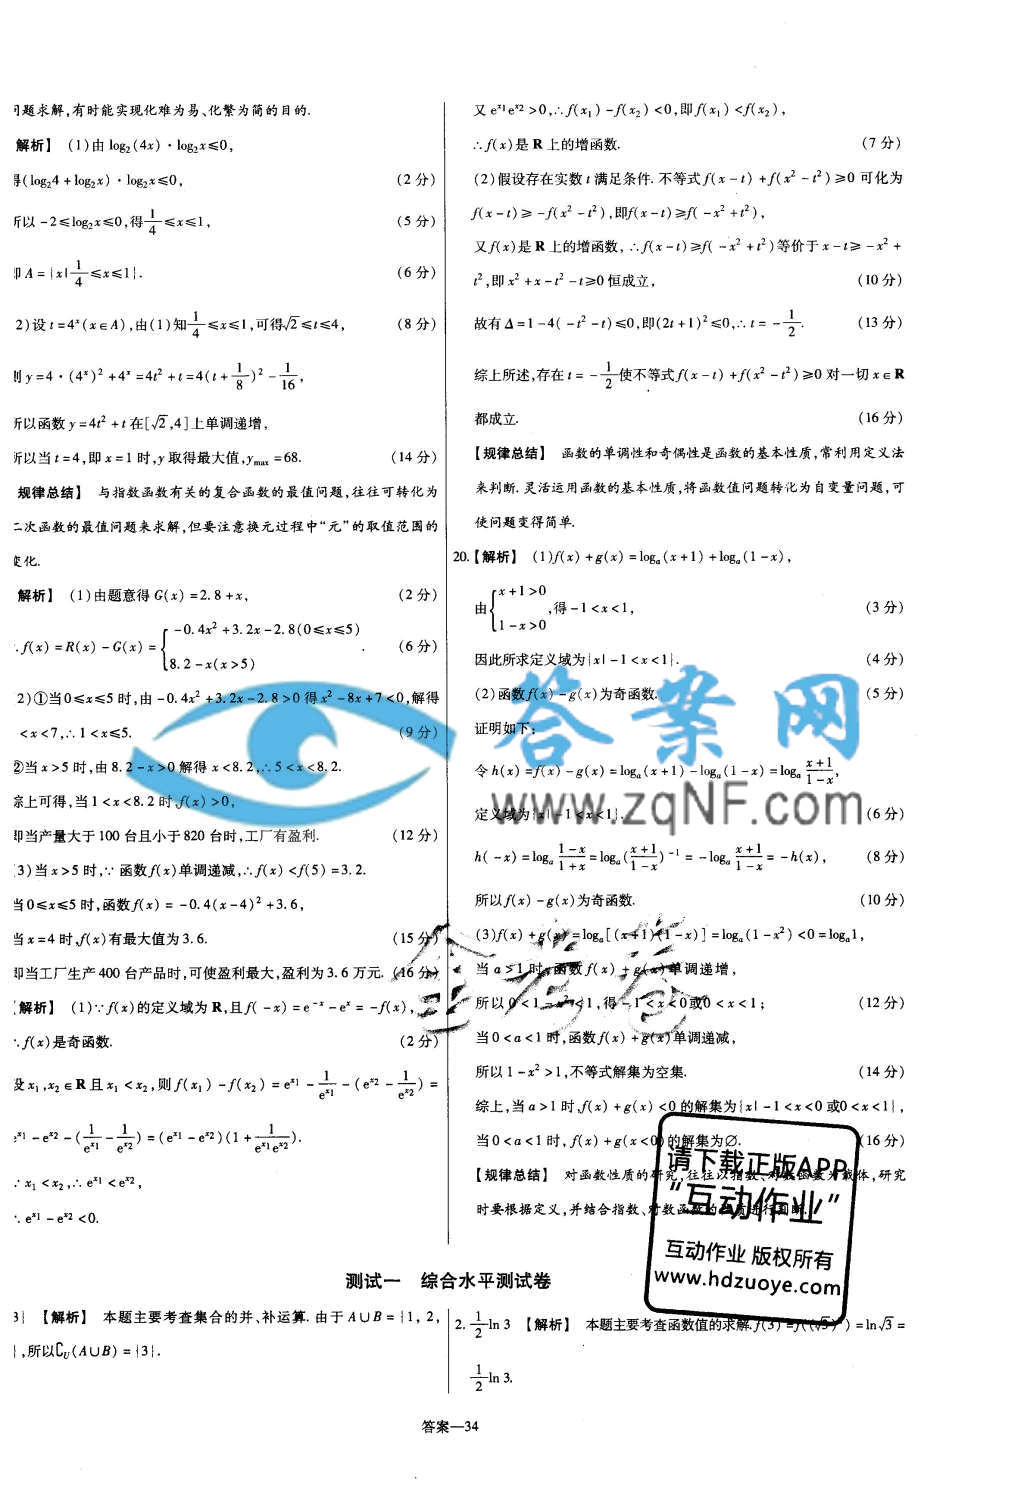 题求解,有时能实现化难为易、化繁为简的目的.
解析】 (1)由 log₂(4x)·log₂x≤0,
得(log₂4+log₂x)·log₂x≤0, (2分)
所以-2≤log₂x≤0,得1/4≤x≤1, (5分)
即A={x|1/4≤x≤1}. (6分)
2)设t=4ˣ(x∈A),由(1)知1/4≤x≤1,可得√2≤t≤4, (8分)
则y=4·(4ˣ)²+4ˣ=4t²+t=4(t+1/8)²-1/16,
所以函数y=4t²+t在[√2,4]上单调递增,
所以当t=4,即x=1时,y取得最大值,y_max=68. (14分)
规律总结】 与指数函数有关的复合函数的最值问题,往往可转化为
二次函数的最值问题来求解,但要注意换元过程中“元”的取值范围的
变化.
解析】 (1)由题意得G(x)=2.8+x, (2分)
∴f(x)=R(x)-G(x)={-0.4x²+3.2x-2.8(0≤x≤5)
8.2-x(x>5) . (6分)
2)①当0≤x≤5时,由-0.4x²+3.2x-2.8>0得x²-8x+7<0,解得
<x<7,∴1<x≤5. (9分)
②当x>5时,由8.2-x>0解得x<8.2,∴5<x<8.2.
综上可得,当1<x<8.2时,f(x)>0,
即当产量大于100台且小于820台时,工厂有盈利. (12分)
3)当x>5时,∵函数f(x)单调递减,∴f(x)<f(5)=3.2.
当0≤x≤5时,函数f(x)=-0.4(x-4)²+3.6,
当x=4时,f(x)有最大值为3.6. (15分)
即当工厂生产400台产品时,可使盈利最大,盈利为3.6万元. (16分)
解析】 (1)∵f(x)的定义域为R,且f(-x)=e⁻ˣ-eˣ=-f(x),
∴f(x)是奇函数. (2分)
设x₁,x₂∈R且x₁<x₂,则f(x₁)-f(x₂)=e^x₁-1/e^x₁-(e^x₂-1/e^x₂)=
e^x₁-e^x₂-(1/e^x₁-1/e^x₂)=(e^x₁-e^x₂)(1+1/(e^x₁e^x₂)).
∵x₁<x₂,∴e^x₁<e^x₂,
∴e^x₁-e^x₂<0.
又e^x₁e^x₂>0,∴f(x₁)-f(x₂)<0,即f(x₁)<f(x₂),
∴f(x)是R上的增函数. (7分)
(2)假设存在实数t满足条件.不等式f(x-t)+f(x²-t²)≥0可化为
f(x-t)≥-f(x²-t²),即f(x-t)≥f(-x²+t²),
又f(x)是R上的增函数,∴f(x-t)≥f(-x²+t²)等价于x-t≥-x²+
t²,即x²+x-t²-t≥0恒成立, (10分)
故有Δ=1-4(-t²-t)≤0,即(2t+1)²≤0,∴t=-1/2. (13分)
综上所述,存在t=-1/2使不等式f(x-t)+f(x²-t²)≥0对一切x∈R
都成立. (16分)
【规律总结】 函数的单调性和奇偶性是函数的基本性质,常利用定义法
来判断.灵活运用函数的基本性质,将函数值问题转化为自变量问题,可
使问题变得简单.
20.【解析】 (1)f(x)+g(x)=logₐ(x+1)+logₐ(1-x),
由{x+1>0
1-x>0 ,得-1<x<1, (3分)
因此所求定义域为{x|-1<x<1}. (4分)
(2)函数f(x)-g(x)为奇函数. (5分)
证明如下:
令h(x)=f(x)-g(x)=logₐ(x+1)-logₐ(1-x)=logₐ (x+1)/(1-x),
定义域为{x|-1<x<1}. (6分)
h(-x)=logₐ (1-x)/(1+x)=logₐ((x+1)/(1-x))⁻¹=-logₐ (x+1)/(1-x)=-h(x), (8分)
所以f(x)-g(x)为奇函数. (10分)
(3)f(x)+g(x)=logₐ[(x+1)(1-x)]=logₐ(1-x²)<0=logₐ1,
当a>1时,函数f(x)+g(x)单调递增,
所以0<1-x²<1,得-1<x<0或0<x<1; (12分)
当0<a<1时,函数f(x)+g(x)单调递减,
所以1-x²>1,不等式解集为空集. (14分)
综上,当a>1时,f(x)+g(x)<0的解集为{x|-1<x<0或0<x<1},
当0<a<1时,f(x)+g(x<0)的解集为∅. (16分)
【规律总结】 对函数性质的研究,往往以指数、对数函数为载体,研究
时要根据定义,并结合指数、对数函数的性质进行判断.
答案网
www.zqNF.com
金考卷
请下载正版APP
“互动作业”
互动作业 版权所有
www.hdzuoye.com
测试一 综合水平测试卷
3} 【解析】 本题主要考查集合的并、补运算.由于A∪B={1,2,
},所以∁U(A∪B)={3}.
2. 1/2 ln 3 【解析】 本题主要考查函数值的求解.f(3)=f((√3)²)=ln√3=
1/2 ln 3.
答案—34